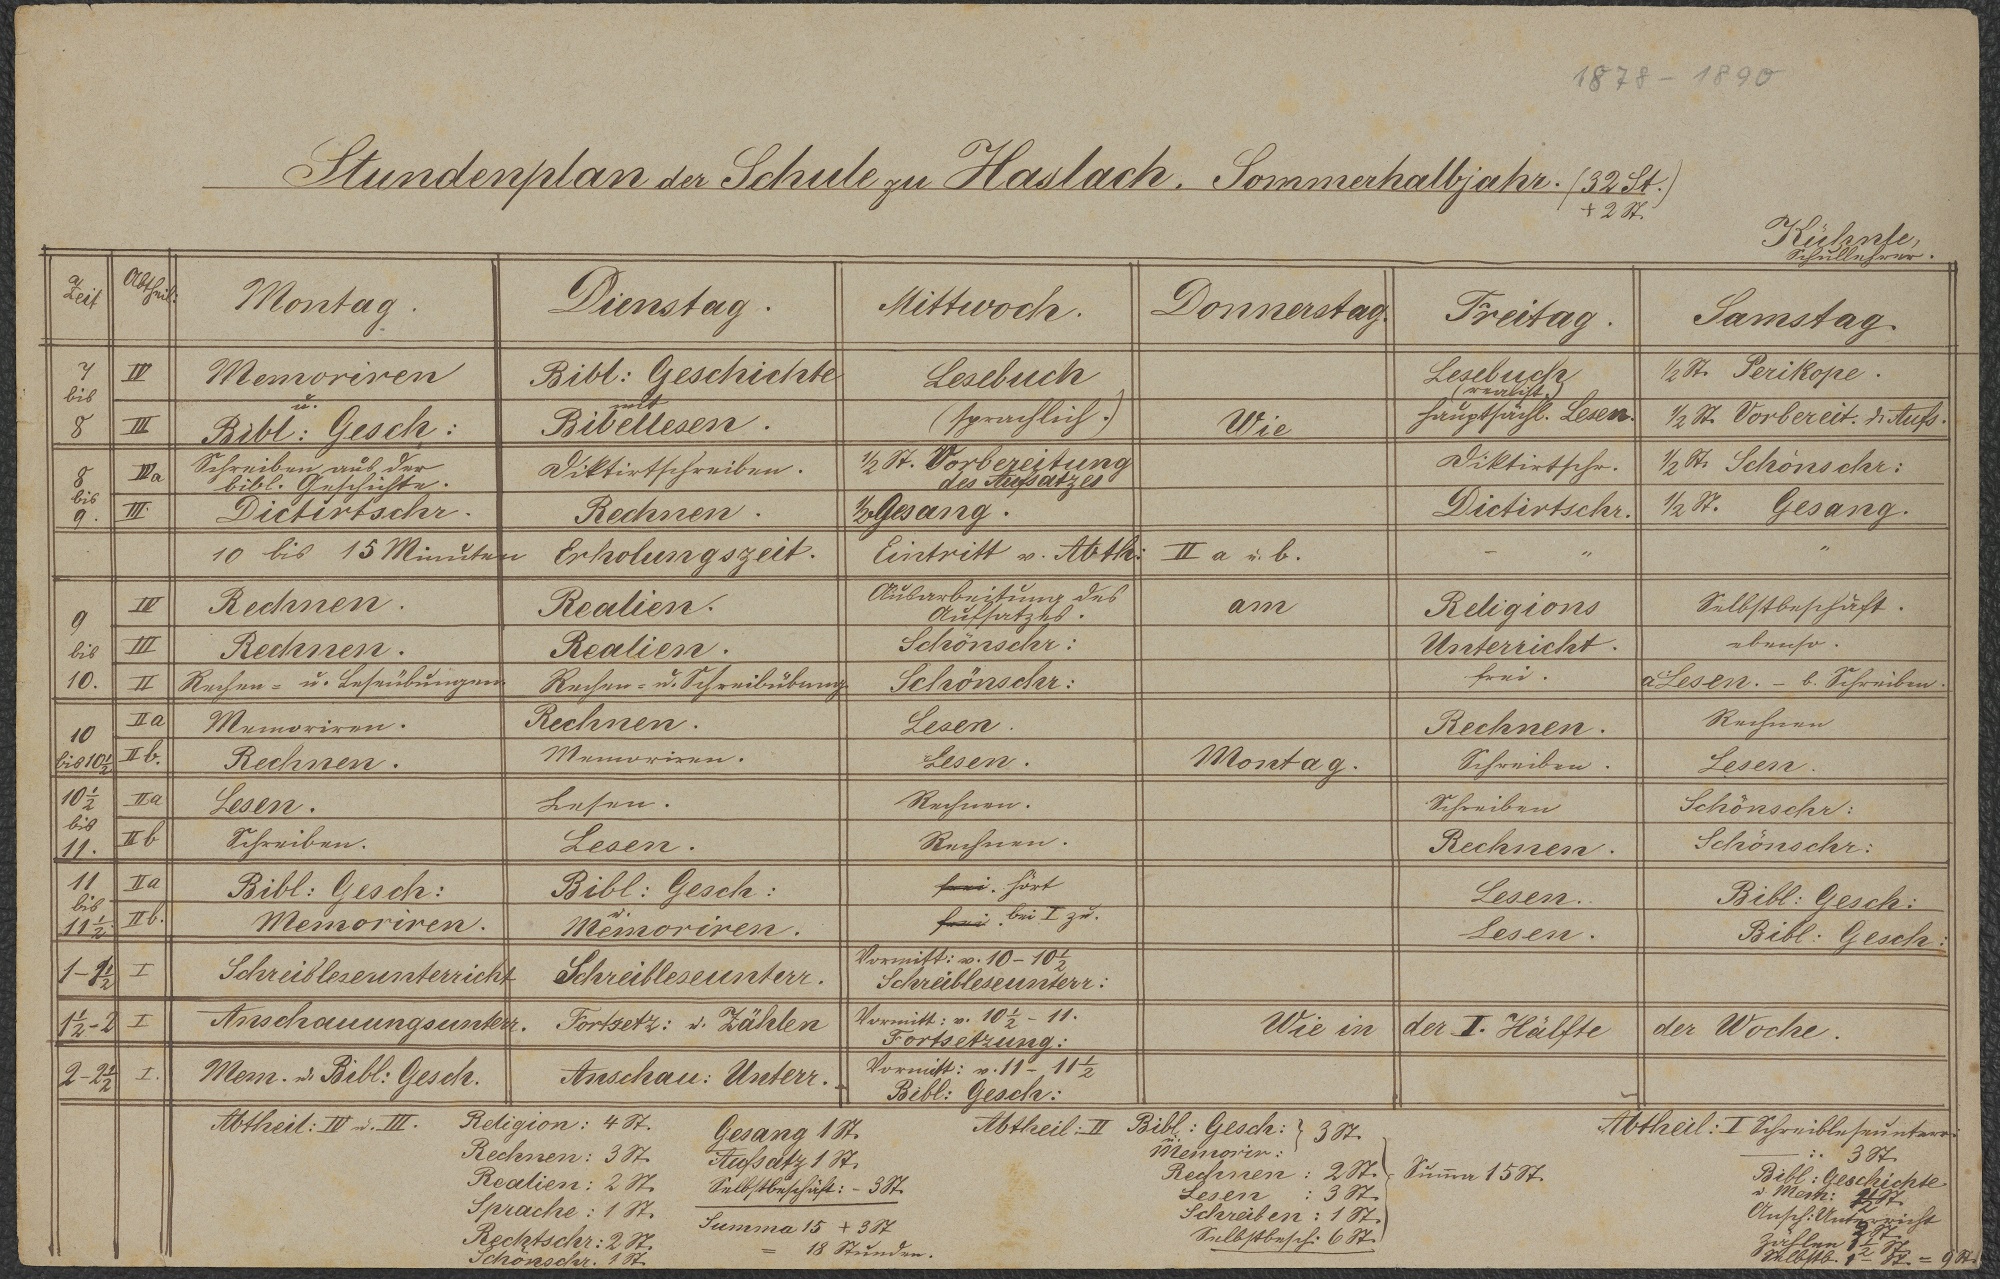 1878 - 1890
Stundenplan der Schule zu Haslach. Sommerhalbjahr. (32 St.)
+ 2 St.
Schullehrer.
Zeit Abtheil: Montag. Dienstag. Mittwoch. Donnerstag. Freitag. Samstag.
7 bis 8 IV Memoriren Bibl: Geschichte Lesebuch Lesebuch (realist.) ½ St. Perikope.
III u. Bibl: Gesch: mit Bibellesen. (sprachlich.) Wie hauptsächl. Lesen. ½ St. Vorbereit. d. Aufs.
8 bis 9. Schreiben aus der bibl. Geschichte. Diktirtschreiben. ½ St. Vorbereitung des Aufsatzes Diktirtschr. ½ St. Schönschr:
III. Dictirtschr. Rechnen. ½ Gesang. Dictirtschr. ½ St. Gesang.
10 bis 15 Minuten Erholungszeit. Eintritt v. Abth: II a u. b. - " "
9 bis 10. IV Rechnen. Realien. Ausarbeitung des Aufsatzes. am Religions Selbstbeschäft.
III Rechnen. Realien. Schönschr: Unterricht. ebenso.
II Rechen= u. Leseübungen Rechen= u. Schreibübung Schönschr: frei. a Lesen. - b. Schreiben.
10 bis 10½ IIa Memoriren. Rechnen. Lesen. Rechnen. Rechnen
IIb. Rechnen. Memoriren. Lesen. Montag. Schreiben. Lesen.
10½ bis 11. IIa Lesen. Lesen. Rechnen. Schreiben Schönschr:
IIb Schreiben. Lesen. Rechnen. Rechnen. Schönschr:
11 bis 11½ IIa Bibl: Gesch: Bibl: Gesch: frei. hört Lesen. Bibl: Gesch:
IIb. Memoriren. u. Memoriren. frei. bei I zu. Lesen. Bibl: Gesch:
1-1½ I Schreibleseunterricht Schreibleseunterr. Vormitt: v. 10 - 10½ Schreibleseunterr:
1½-2 I Anschauungsunterr. Fortsetz: u. Zählen Vormitt: v. 10½ - 11. Fortsetzung: Wie in der I. Hälfte der Woche.
2-2½ I. Mem. u. Bibl: Gesch. Anschau: Unterr. Vormitt: v. 11 - 11½ Bibl: Gesch:
Abtheil: IV u. III. Religion: 4 St.
Rechnen: 3 St.
Realien: 2 St.
Sprache: 1 St.
Rechtschr: 2 St.
Schönschr. 1 St.
Gesang 1 St.
Aufsatz 1 St.
Selbstbeschäft: - 3 St.
Summa 15 + 3 St
= 18 Stunden.
Abtheil: II Bibl: Gesch: } 3 St.
u. Memorir:
Rechnen: 2 St.
Lesen: 3 St.
Schreiben: 1 St.
Selbstbesch: 6 St.
Summa 15 St.
Abtheil: I Schreibleseunterr:
3 St.
Bibl: Geschichte
u. Mem:
Ansch: Unterricht
Zählen ½ St.
Selbstb. = 9 St.